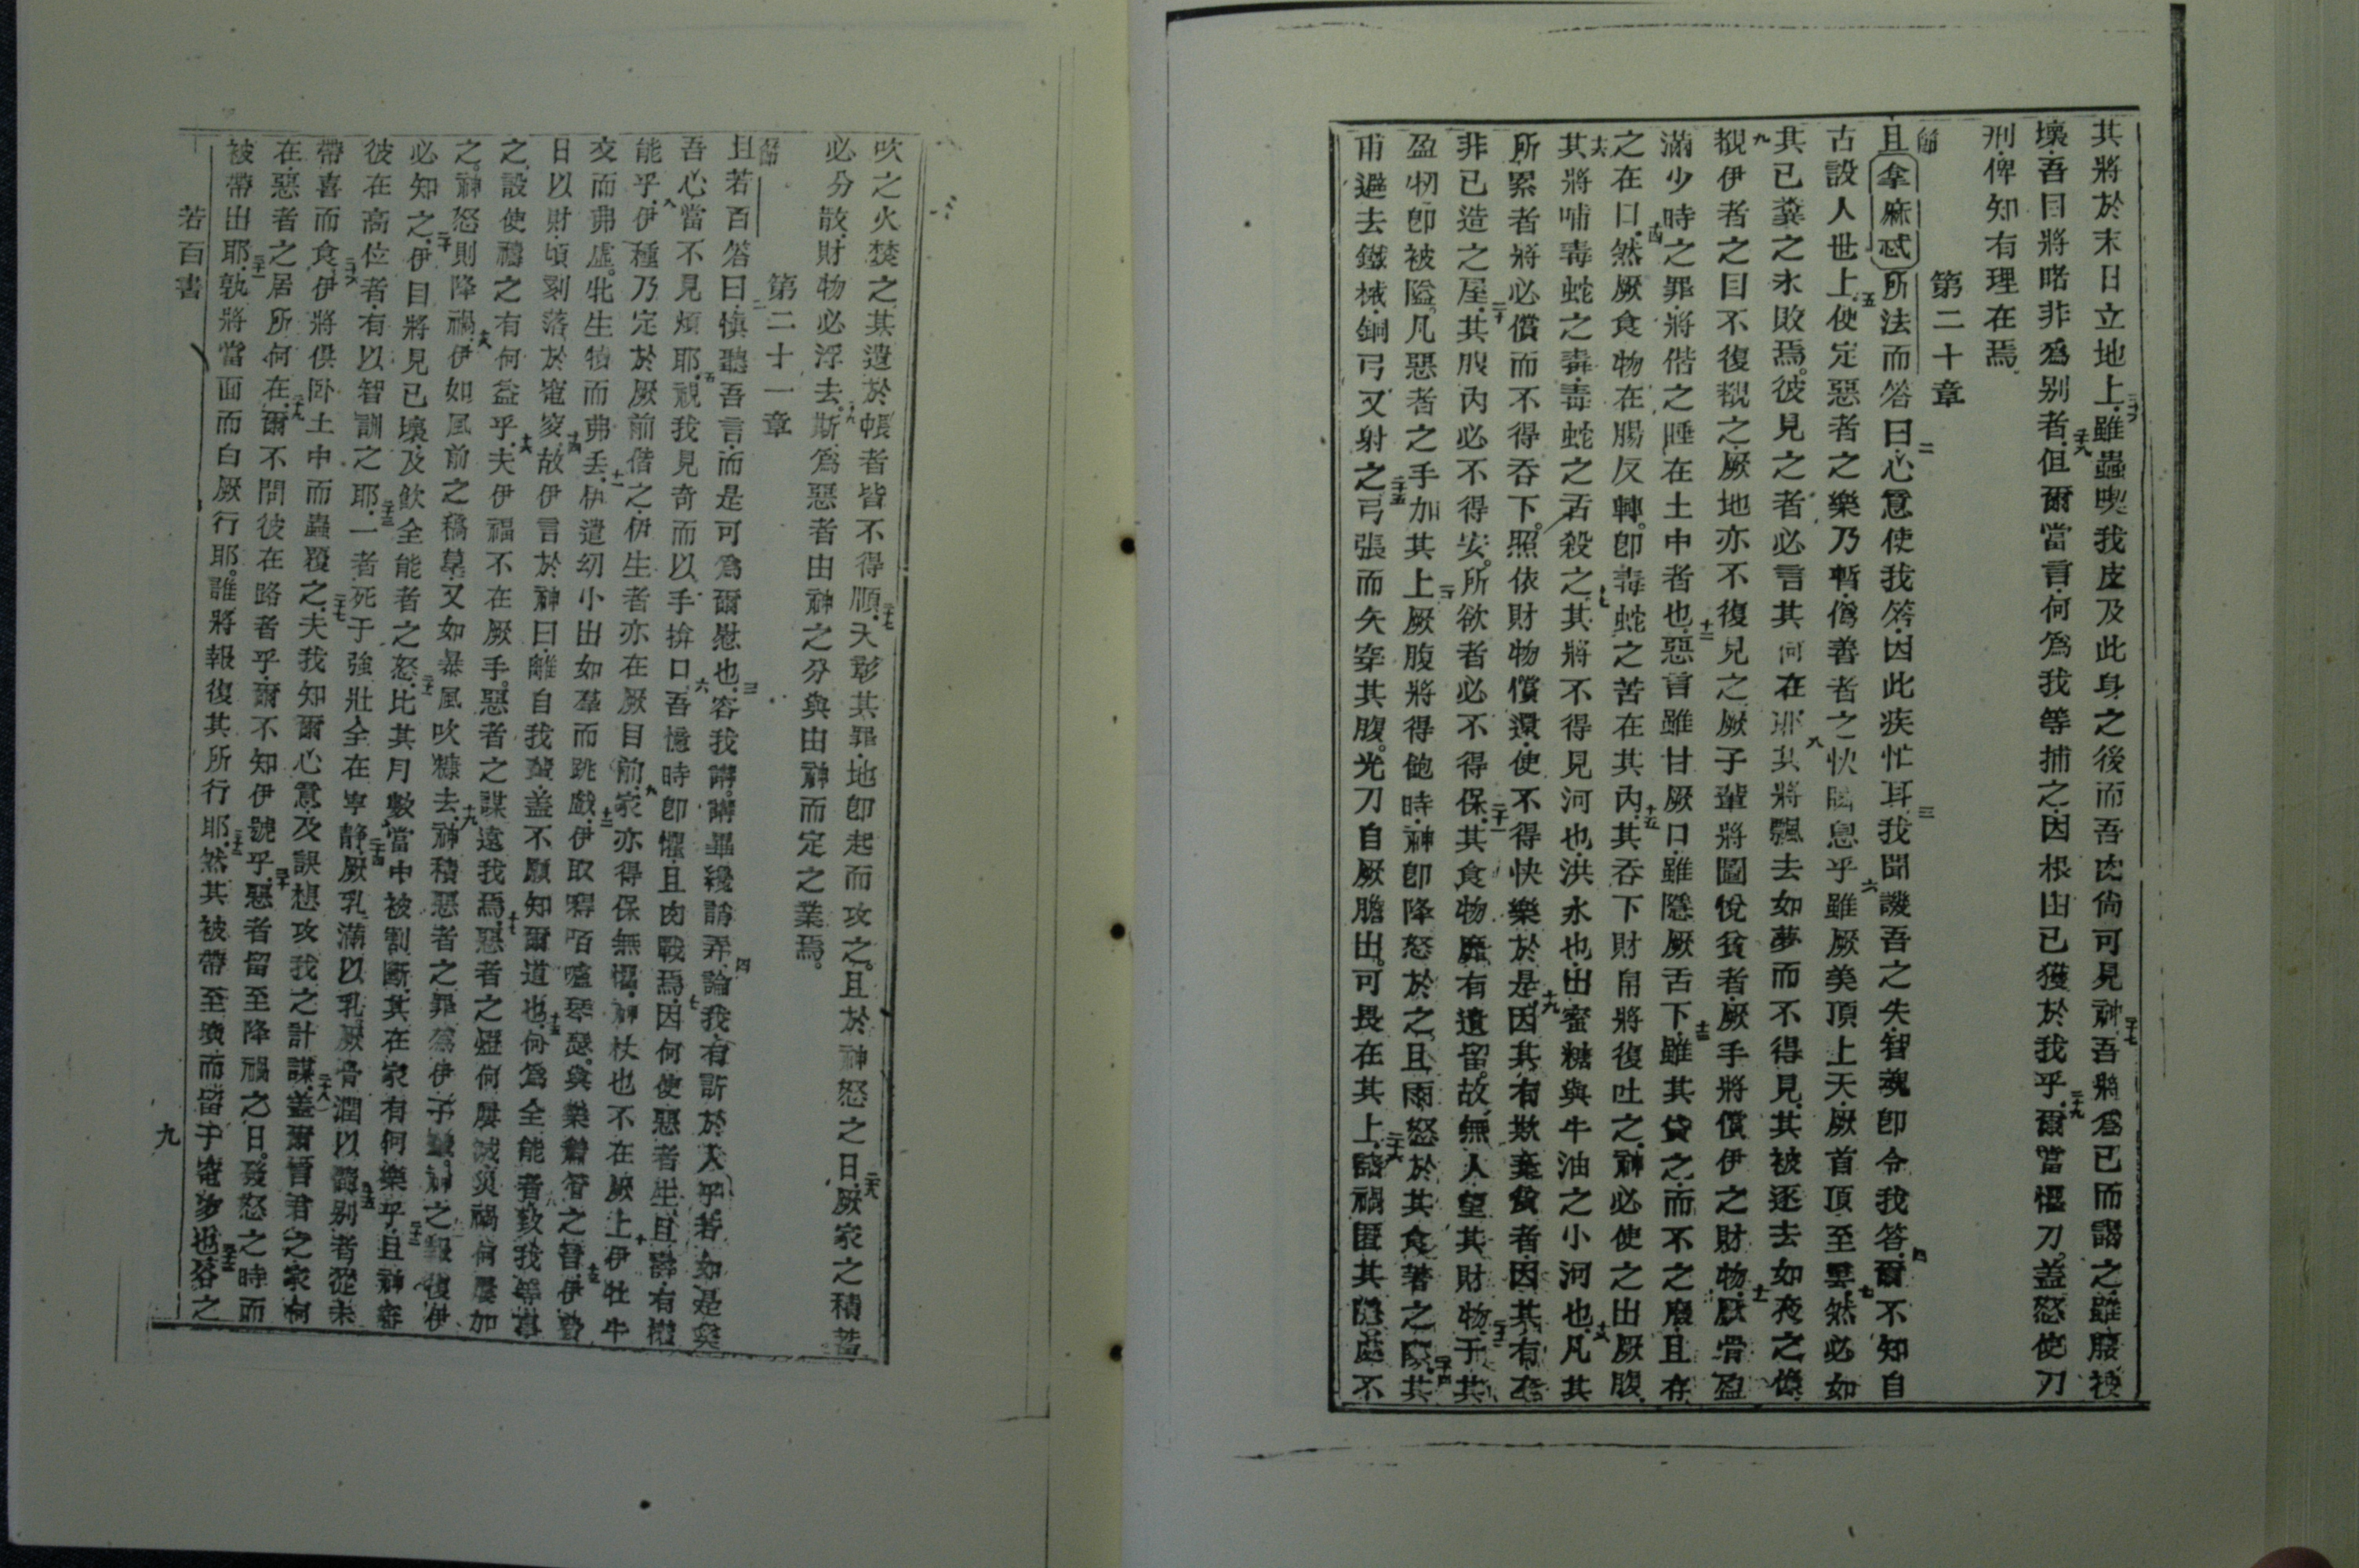 其將於末日立地上二十六雖蟲喫我皮及此身之後而吾肉尚可見神二十七吾將為已而謁之雖腹被
壞吾目將睹非為別者二十八但爾當言何為我等捕之因根由已獲於我乎二十九爾當懼刀蓋怒使刀
刑俾知有理在焉
第二十章
一節且拿麻忒所法而答曰二心意使我答因此疾忙耳三我聞譏吾之失智魂卽令我答四爾不知自
古設人世上五使定惡者之樂乃暫僞善者之快瞬息乎六雖厥美頂上天厥首頂至雲七然必如
其已糞之永敗焉彼見之者必言其何在耶八其將飄去如夢而不得見其被逐去如夜之像
九覩伊者之目不復覩之厥地亦不復見之十厥子輩將圖悅貧者厥手將償伊之財物十一厥骨盈
滿少時之罪將偕之睡在土中者也十二惡言雖甘厥口雖隱厥舌下十三雖其貸之而不之廢且存
之在口十四然厥食物在腸反轉卽毒蛇之苦在其內十五其吞下財帛將復吐之神必使之出厥腹
十六其將哺毒蛇之毒毒蛇之舌殺之十七其將不得見河也洪水也出蜜糖與牛油之小河也十八凡其
所累者將必償而不得吞下照依財物償還使不得快樂於是十九因其有欺棄貧者因其有
非已造之屋二十其腹內必不得安所欲者必不得保二十一其食物靡有遺留故無人望其財物二十二于其
盈物卽被隘凡惡者之手加其上二十三厥腹將得飽時神卽降怒於之且雨怒於其食著之際二十四其
甫避去鐵械銅弓又射之二十五弓張而矢穿其腹光刀自厥膽出可畏在其上二十六諸禍匿其隱處不
吹之火焚之其遺於帳者皆不得順二十七天彰其罪地卽起而攻之且於神怒之日二十八厥家之積蓄
必分散財物必浮去二十九斯為惡者由神之分與由神而定之業焉
第二十一章
一節且若百答曰二慎聽吾言而是可為爾慰也三容我講講畢纔誚弄四論我有訴於人乎若如是奚
吾心當不見煩耶五視我見奇而以手揜口六吾憶時卽懼且肉戰焉七因何使惡者生且壽有權
能乎八伊種乃定於厥前偕之伊生者亦在厥目前九家亦得保無懼神杖也不在厥上十伊牡牛
交而弗虛牝生犢而弗丟十一伊遣幼小出如羣而跳戲十二伊取琴瑟與樂簫管之音十三伊費
日以財頃刻落於窀穸十四故伊言於神曰離自我輩蓋不願知爾道也十五何為全能者致我等事
之設使禱之有何益乎十六夫伊福不在厥手惡者之謀遠我焉十七惡者之燈何屢滅災禍何屢加
之神怒則降禍十八伊如風前之稿草又如暴風吹糠去十九神積惡者之罪為伊子輩神之報復伊
必知之二十伊目將見已壞及飲全能者之怒二十一比其月數當中被割斷其在家有何樂乎二十二且神審
彼在高位者有以智訓之耶二十三一者死于強壯全在寧靜二十四厥乳滿以乳厥骨潤以髓二十五別者從未
帶喜而食二十六伊將俱卧土中而蟲覆之二十七夫我知爾心意及誤想攻我之計謀二十八蓋爾曾君之家何
在惡者之居所何在二十九爾不問彼在路者乎爾不知伊號乎三十惡者留至降禍之日發怒之時而
被帶出耶三十一孰將當面而白厥行耶誰將報復其所行耶三十二然其被帶至墳而留于窀穸也三十三谷之
若百書
九